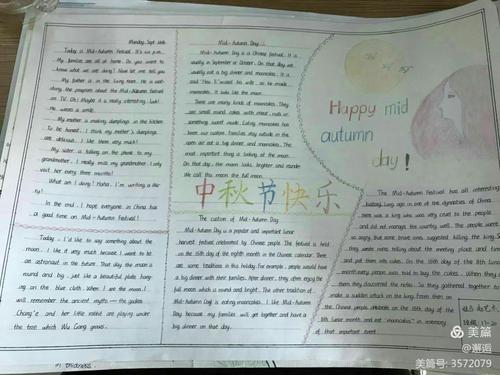 Monday, Sept. 16th
Today is Mid-Autumn Festival. It's six p.m..
My families are all at home. Do you want to
know what we are doing? Now let me tell you.
My father is in the living room. He is wat-
ching the program about the Mid-Autumn Festival
on TV. Oh! Maybe it is really interesting. Look!
He wears a smile.
My mother is making dumplings in the kitchen.
To be honest, I think my mother's dumplings
are delicious. I like them very much!
My sister is talking on the phone to my
grandmother. I really miss my grandmother. I only
visit her every three months!
What am I doing? Haha, I'm writing a dia-
ry!
In the end, I hope everyone in China has
a good time on Mid-Autumn Festival!
Mid-Autumn Day
Mid-Autumn Day is a Chinese festival. It is
usually in September or October. On that day we
usually eat a big dinner and mooncakes. It is
said "Hou Yi" missed his wife, so he made
mooncakes. It looks like the moon.
There are many kinds of mooncakes. They
are small round cakes with meat, nuts or
something sweet inside. Eating mooncakes has
been our custom. Families stay outside in the
open air eat a big dinner and mooncakes. The
most important thing is looking at the moon.
On that day, the moon looks brighter and rounder.
We call this moon the full moon.
Happy mid
autumn
day!
中秋节快乐
Today
I'd like to say something about the
moon. I like it very much because I want to be
an astronaut in the future. That day the moon is
round and big, just like a beautiful plate hang-
ing on the blue cloth. When I see the moon, I
will remember the ancient myths — the goddess
Chang'e and her little rabbit are playing under
the tree which Wu Gang grows.
The custom of Mid-Autumn Day
Mid-Autumn Day is a popular and important lunar
harvest festival celebrated by Chinese people. The festival is held
on the 15th day of the eighth month in the Chinese calendar. There
are some traditions in this holiday. For example, people would have
a big dinner with their families. After dinner, they often enjoy the
full moon which is round and bright. The other tradition of
Mid-Autumn Day is eating mooncakes. I like Mid-Autumn
Day because my families will get together and have a
big dinner on that day.
The Mid-Autumn Festival has all interesting
history. Long ago in one of the dynasties of China,
there was a king who was very cruel to the people
and did not manage the country well. The people were
so angry that some brave ones suggested killing the king. So
they wrote notes telling about the meeting place and time
and put them into cakes. On the 15th day of the 8th lunar
month every person was told to buy the cakes. When they ate
them they discovered the notes. So they gathered together to
make a sudden attack on the king. From then on
the Chinese people celebrate on the 15th day of the
8th lunar month and eat "mooncakes" in memory
of that important event.
美篇
@邂逅
美篇号: 3572079